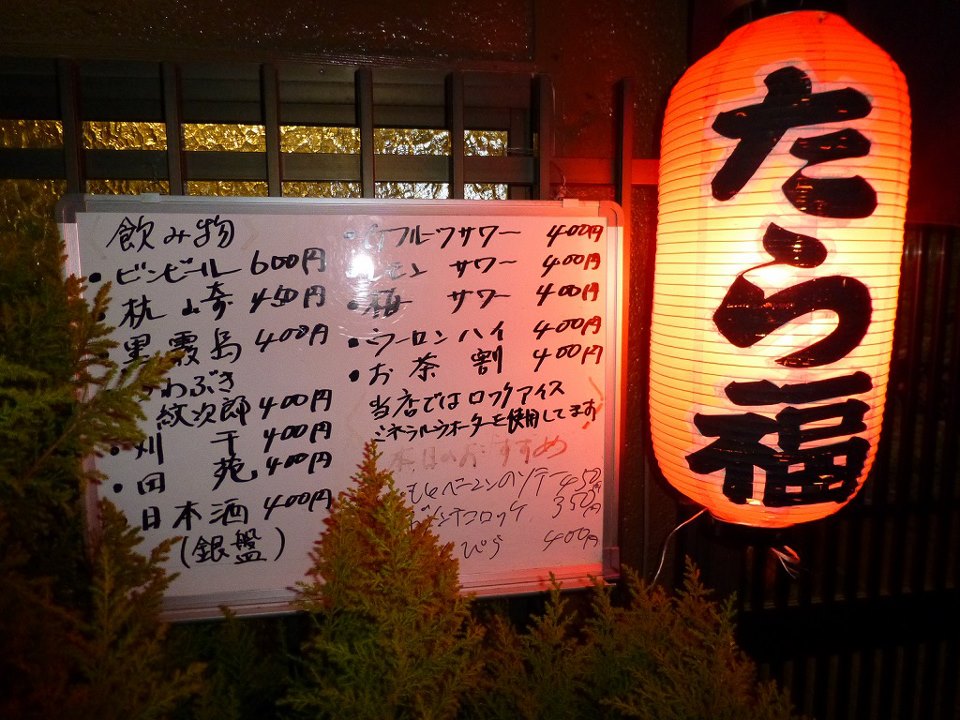 飲み物
・ビンビール 600円
・枕崎 450円
・黒霧島 400円
わぶき
紋次郎 400円
・刈干 400円
・田苑 400円
日本酒 400円
(銀盤)
フルーツサワー 400円
サワー 400円
・梅サワー 400円
・ウーロンハイ 400円
・お茶割 400円
当店ではロックアイス
ミネラルウォーターを使用してます
本日のおすすめ
ベーコンのソテー 450
メンチコロッケ 350円
400円
たら福